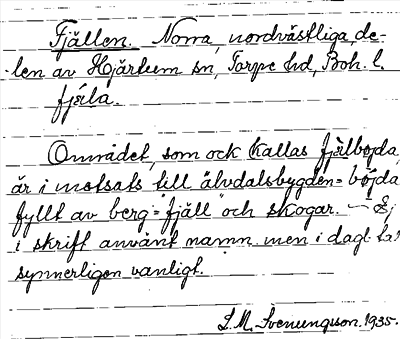 Fjällen. Norra, nordvästliga, de-
len av Hjärtum sn, Torpe hd, Boh. l.
fjä̀la.
Området, som ock kallas fjä̀lbojda,
är i motsats till älvdalsbygden = böjda
fyllt av berg = "fjäll" och skogar. — Ej
i skrift använt namn men i dagl. tal
synnerligen vanligt.
S. M. Svenungsson. 1935.